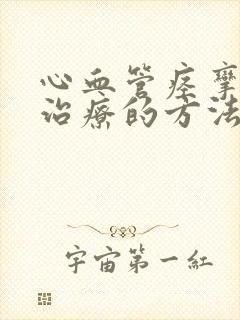 心血管痉挛
治療的方法
宇宙第一紅